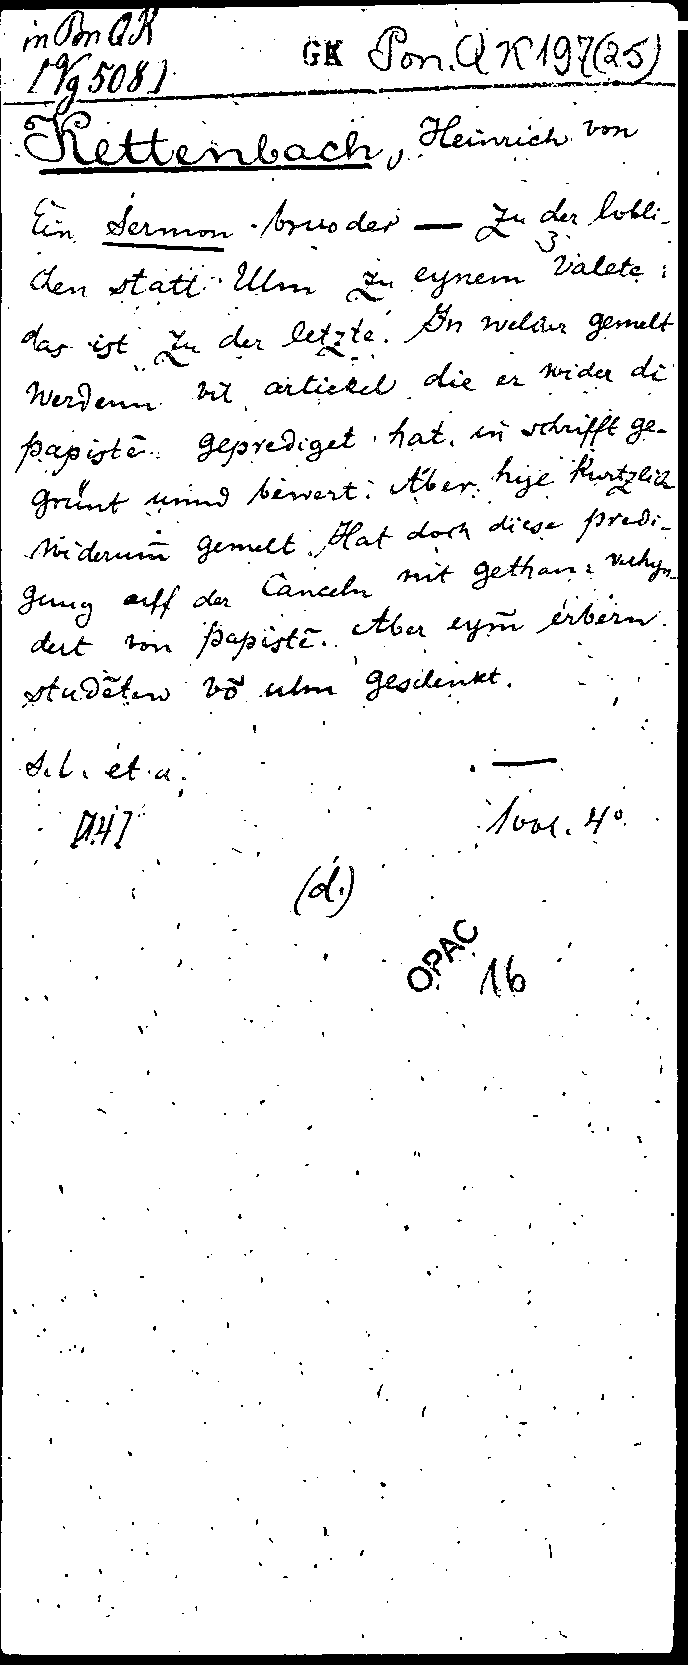 in Pon QK
[Vg 508]
GK Pon. QK 197(25)
Kettenbach, Heinrich von
Ein Sermon bruoder — zu der lobli-
chen statt Ulm zu eynem Valete:
das ist zu der letzte. In welcher gemelt
werdenn vil artickel die er wider di
papistē geprediget hat, in schrifft ge-
grünt unnd bewert. Aber hye kurtzlich
widerum̄ gemelt. Hat doch diese predi-
gung auff der Canceln nit gethan: verhyn-
dert von papistē. Aber eym̄ erbern
studētēn vō ulm geschenkt.
S. l. et a. —
[14] 4°.
(d.)
OPAC
16